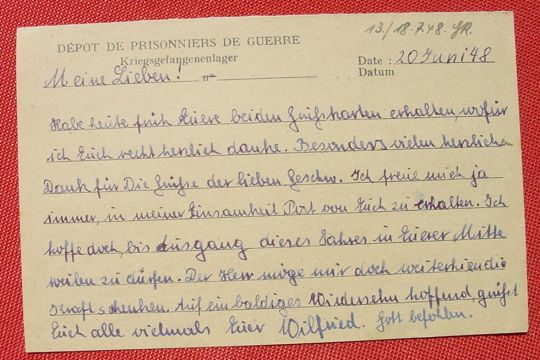 13./18.7.48. GR.
DÉPOT DE PRISONNIERS DE GUERRE
Kriegsgefangenenlager
Date : 20 Juni 48
Datum
Meine Lieben! n°
Habe heute früh Euere beiden Grußkarten erhalten, wofür
ich Euch recht herzlich danke. Besonders vielen herzlichen
Dank für Die Grüße der lieben Geschw. Ich freue mich ja
immer, in meiner Einsamkeit Post von Euch zu erhalten. Ich
hoffe doch, bis Ausgang dieses Jahres in Eurer Mitte
weilen zu dürfen. Der Herr möge mir doch weiterhien die
Kraft schenken. Auf ein baldiges Wiedersehn hoffend, grüßt
Euch alle vielmals Euer Wilfried. Gott befohlen.